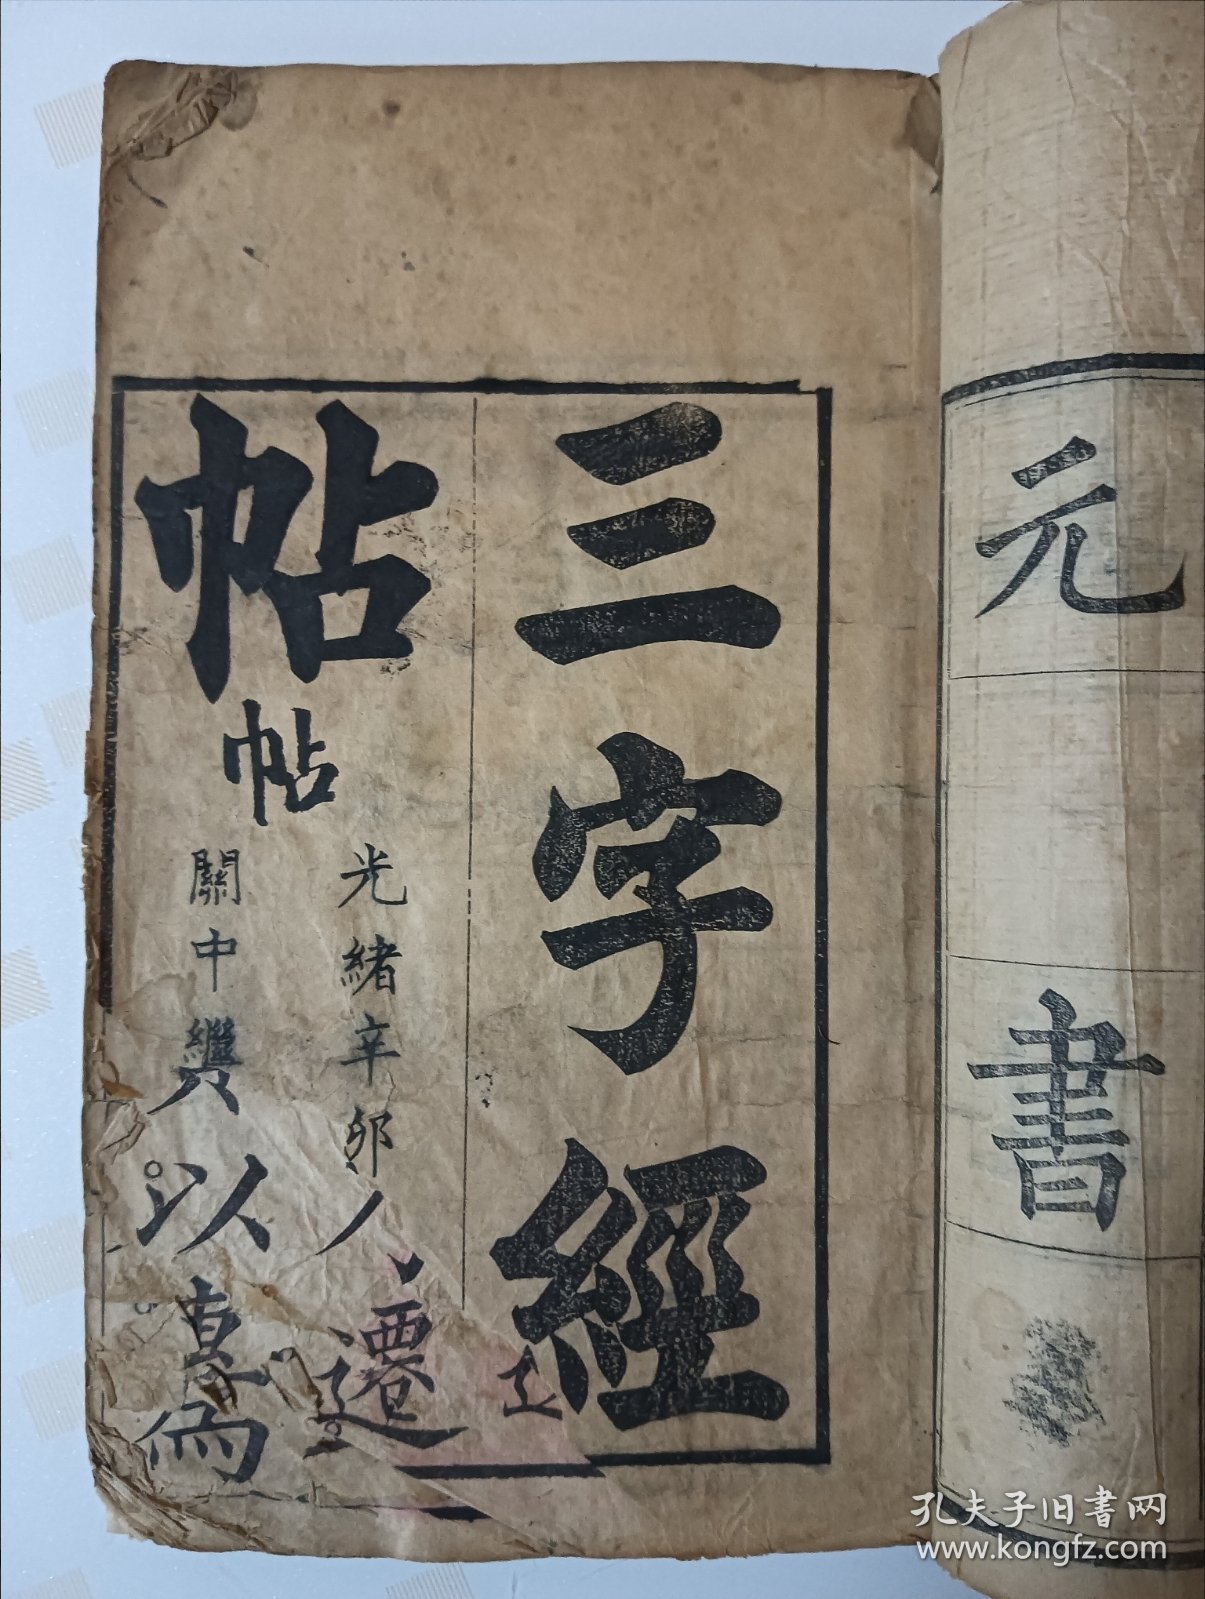 元
書
三字經
帖
帖
光緒辛卯
遷
關中
以真
孔夫子旧書网
www.kongfz.com